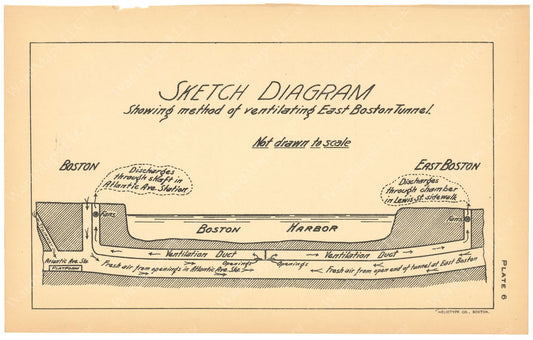 SKETCH DIAGRAM
Showing method of ventilating East Boston Tunnel.
Not drawn to scale
BOSTON
EAST BOSTON
Discharges
through shaft in
Atlantic Ave. Station.
Discharges
through chamber
in Lewis St. sidewalk
Fans
Fans
BOSTON HARBOR
Ventilation Duct
Ventilation Duct
Atlantic Ave. Sta.
PLATFORM
Openings
Openings
Fresh air from openings in Atlantic Ave. Sta.
Fresh air from open end of tunnel at East Boston
PLATE 6
HELIOTYPE CO., BOSTON.